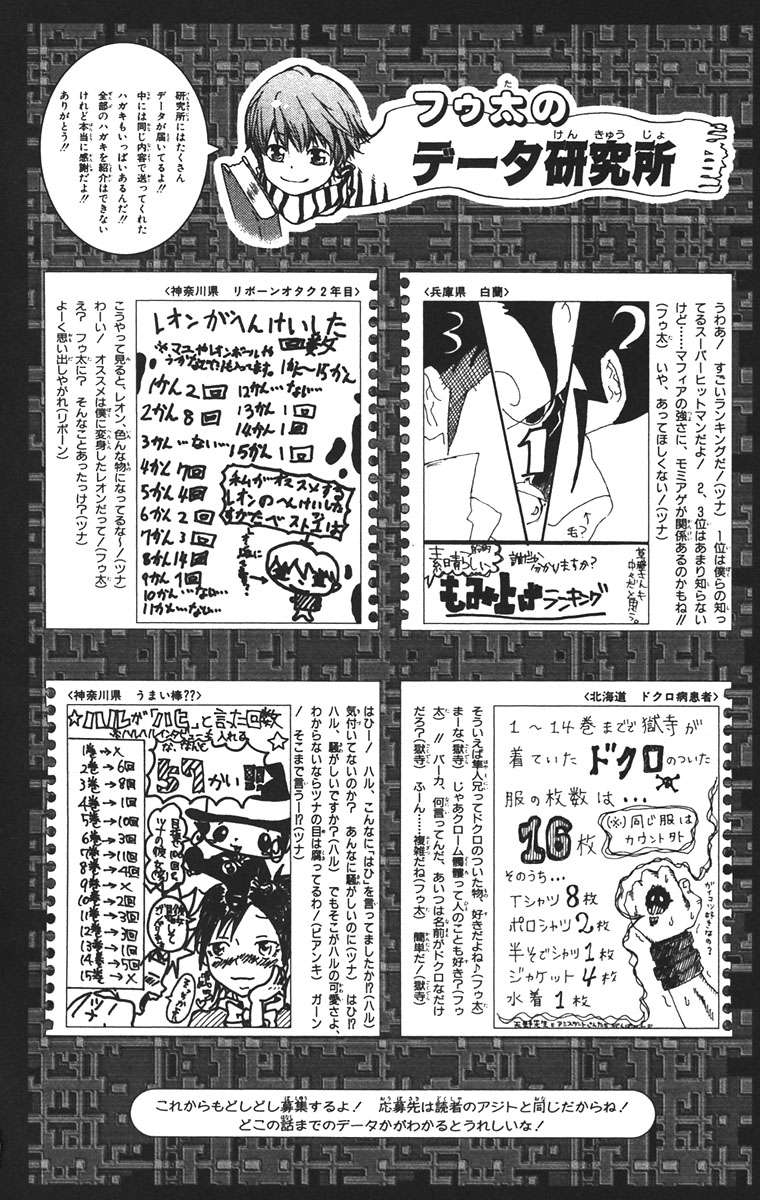 フゥ太の
データ研究所
研究所にはたくさん
データが届いてるよ!!
中には同じ内容で送ってくれた
ハガキもいっぱいあるんだ!!
全部のハガキを紹介はできない
けれど本当に感謝だよ!!
ありがとう!!
〈兵庫県　白蘭〉
3
1
毛?
素晴らしい
誰だか分かりますか?
もみ上げランキング
うわあ！　すごいランキングだ！(ツナ)　1位は僕らの知っ
てるスーパーヒットマンだよ！　2、3位はあまり知らない
けど……マフィアの強さに、モミアゲが関係あるのかもね!!
(フゥ太)　いや、あってほしくない！(ツナ)
〈神奈川県　リボーンオタク2年目〉
レオンがへんけいした
回数
1かん〜15かん
1かん 2回
2かん 8回
3かん…ない…
4かん 7回
5かん 4回
6かん 2回
7かん 3回
8かん 14回
9かん 1回
10かん…ない…
11かん…ない…
12かん…ない…
13かん 1回
14かん 1回
15かん 1回
私がオススメする
レオンのへんけいした
すがたベスト1は
こうやって見ると、レオン、色んな物になってるな〜！(ツナ)
わーい！　オススメは僕に変身したレオンだって！(フゥ太)
え？　フゥ太に？　そんなことあったっけ？(ツナ)
よーく思い出しやがれ(リボーン)
〈北海道　ドクロ病患者〉
1〜14巻までで獄寺が
着ていた ドクロのついた
服の枚数は…
16枚
(※)同じ服は
カウント外
そのうち…
Tシャツ 8枚
ポロシャツ 2枚
半そでシャツ 1枚
ジャケット 4枚
水着 1枚
ガイコツ好きなの?
そういえば隼人兄ってドクロのついた物、好きだよね♪(フゥ太)
まーな(獄寺)　じゃあクローム髑髏って人のことも好き？(フゥ
太)　!!　バーカ、何言ってんだ、あいつは名前がドクロなだけ
だろ？(獄寺)　ふーん……複雑だね(フゥ太)　簡単だ！(獄寺)
〈神奈川県　うまい棒??〉
☆ハルが「ハヒ」と言った回数
なんと
57かい!!!
1巻→×
2巻→6回
3巻→8回
4巻→1回
5巻→10回
6巻→3回
7巻→11回
8巻→4回
9巻→×
10巻→2回
11巻→3回
12巻→3回
13巻→1回
14巻→5回
15巻→×
ツナ
はひー！　ハル、こんなに「はひ」を言ってましたか!?(ハル)
気付いてないのか？　あんなに騒がしいのに(ツナ)　はひ!?
ハル、騒がしいですか？(ハル)　でもそこがハルの可愛さよ、
わからないならツナの目は腐ってるわ！(ビアンキ)　ガーン
！　そこまで言うー!?(ツナ)
これからもどしどし募集するよ！　応募先は読者のアジトと同じだからね！
どこの話までのデータかがわかるとうれしいな！